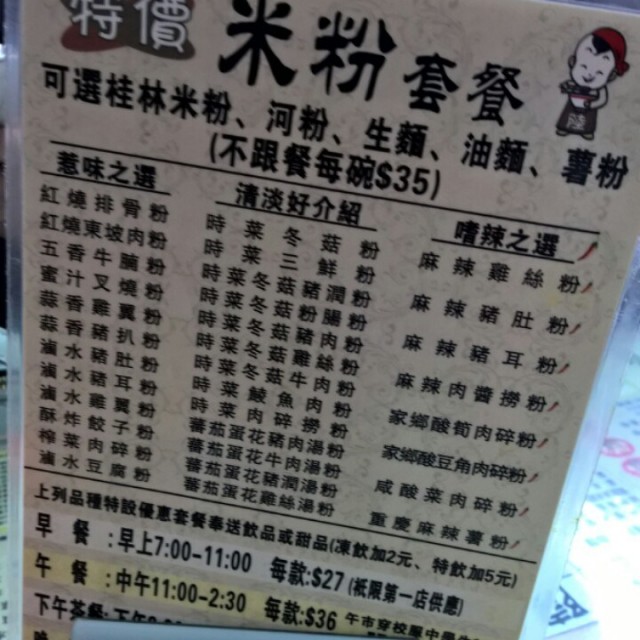 特價 米粉 套餐
可選桂林米粉、河粉、生麵、油麵、薯粉
(不跟餐每碗$35)
惹味之選
紅燒排骨粉
紅燒東坡肉粉
五香牛腩粉
蜜汁叉燒粉
蒜香雞翼粉
蒜香豬扒粉
滷水豬肚粉
滷水豬耳粉
滷水雞翼粉
酥炸餃子粉
榨菜肉碎粉
滷水豆腐粉
清淡好介紹
時菜冬菇粉
時菜三鮮粉
時菜冬菇豬潤粉
時菜冬菇粉腸粉
時菜冬菇豬肉粉
時菜冬菇雞絲粉
時菜冬菇牛肉粉
時菜鯪魚肉粉
時菜肉碎撈粉
蕃茄蛋花豬肉湯粉
蕃茄蛋花牛肉湯粉
蕃茄蛋花豬潤湯粉
蕃茄蛋花雞絲湯粉
嗜辣之選
麻辣雞絲粉
麻辣豬肚粉
麻辣豬耳粉
麻辣肉醬撈粉
家鄉酸筍肉碎粉
家鄉酸豆角肉碎粉
咸酸菜肉碎粉
重慶麻辣薯粉
上列品種特設優惠套餐奉送飲品或甜品(凍飲加2元、特飲加5元)
早餐:早上7:00-11:00 每款:$27 (祇限第一店供應)
午餐:中午11:00-2:30 每款:$36
下午茶餐:下午